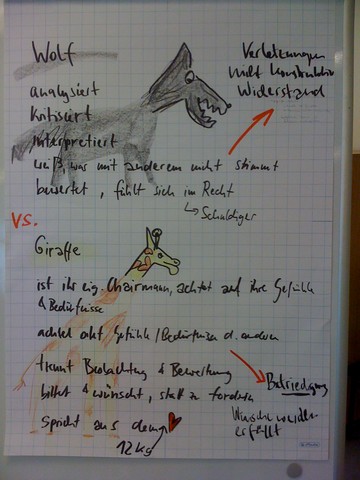 Wolf
Verletzungen
nicht konstruktiv
Widerstand
analysiert
kritisiert
interpretiert
weiß, was mit anderem nicht stimmt
bewertet, fühlt sich im Recht
↳ Schuldiger
VS.
Giraffe
ist ihr eig. Chairmann, achtet auf ihre Gefühle
& Bedürfnisse
achtet Gefühle / Bedürfnisse d. anderen
trennt Beobachtung & Bewertung
bittet & wünscht, statt zu fordern
Befriedigung
Wünsche werden
erfüllt
spricht aus dem
12kg